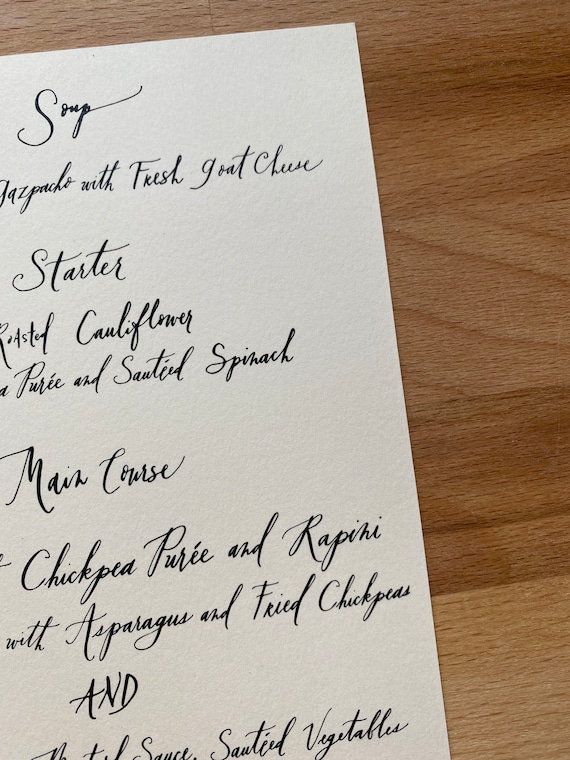 Soup
Gazpacho with Fresh Goat Cheese
Starter
Roasted Cauliflower
Purée and Sautéed Spinach
Main Course
Chickpea Purée and Rapini
with Asparagus and Fried Chickpeas
AND
Sauce, Sautéed Vegetables